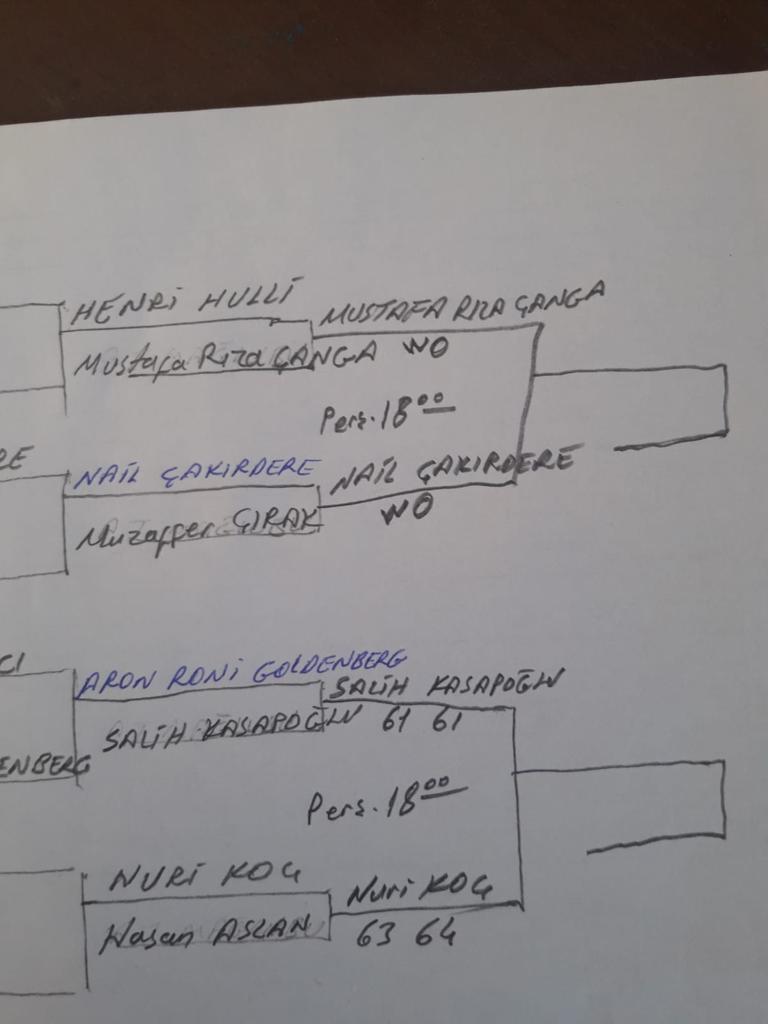 HENRİ HULLİ
MUSTAFA RIZA ÇANGA
Mustafa Rıza ÇANGA
WO
Perş. 18 00
NAİL ÇAKIRDERE
NAİL ÇAKIRDERE
Muzaffer ÇIRAK
WO
CI
ARON RONİ GOLDENBERG
SALİH KASAPOĞLU
SALİH KASAPOĞLU
61 61
ENBERG
Perş. 18 00
NURİ KOÇ
Nuri KOÇ
Hasan ASLAN
63 64